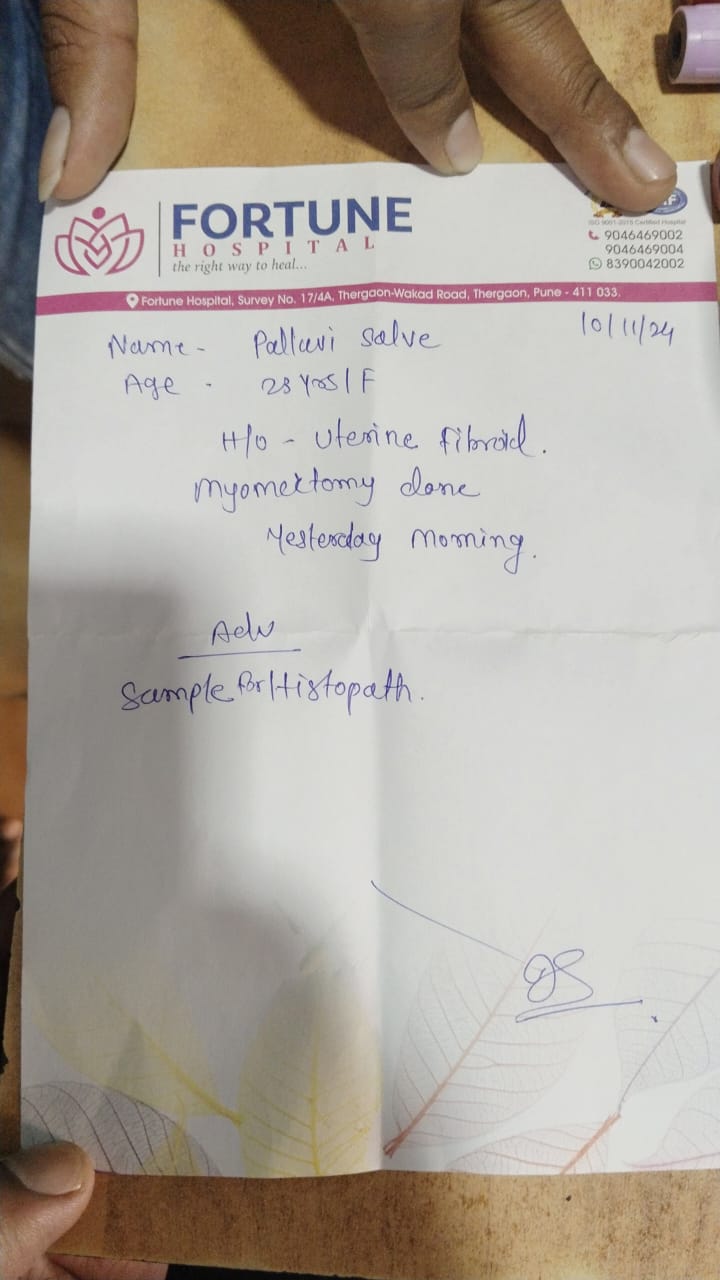 FORTUNE
HOSPITAL
the right way to heal...
ISO 9001:2015 Certified Hospital
9046469002
9046469004
8390042002
Fortune Hospital, Survey No. 17/4A, Thergaon-Wakad Road, Thergaon, Pune - 411 033.
10/11/24
Name - Pallavi Salve
Age - 28 Yrs/F
H/o - Uterine fibroid.
Myomectomy done
Yesterday Morning.
Adv
Sample for Histopath.